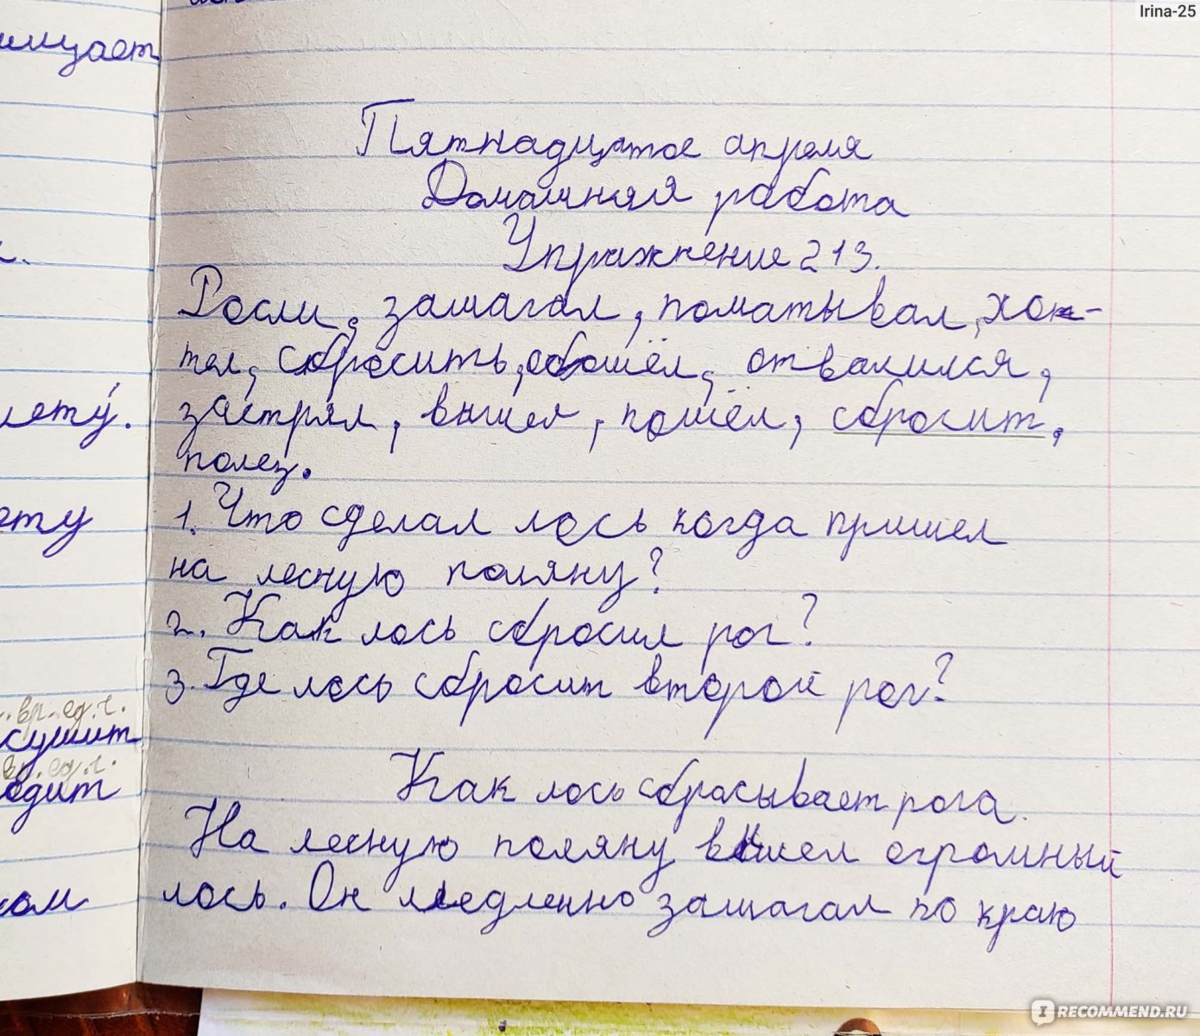 Irina-25
Пятнадцатое апреля
Домашняя работа
Упражнение 213.
Росли, зашагал, поматывал, хо-
тел, сбросить, обошёл, отвалился,
застрял, вышел, пошёл, сбросит,
полез.
1. Что сделал лось когда пришел
на лесную поляну?
2. Как лось сбросил рог?
3. Где лось сбросит второй рог?
Как лось сбрасывает рога.
На лесную поляну вышел огромный
лось. Он медленно зашагал по краю
лету.
сушит
вр. ед. ч.
ом
IRECOMMEND.RU